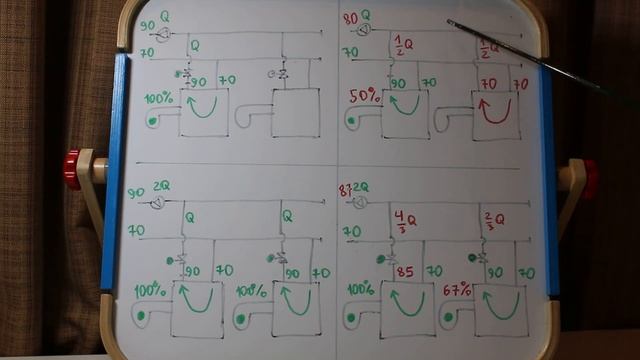 90 Q
Q
70
90 70
100%
80 Q
½Q ½Q
70
90 70 70 70
50%
90 2Q
Q Q
70
90 70 90 70
100% 100%
87 2Q
4/3 Q 2/3 Q
70
85 70 90 70
100% 67%